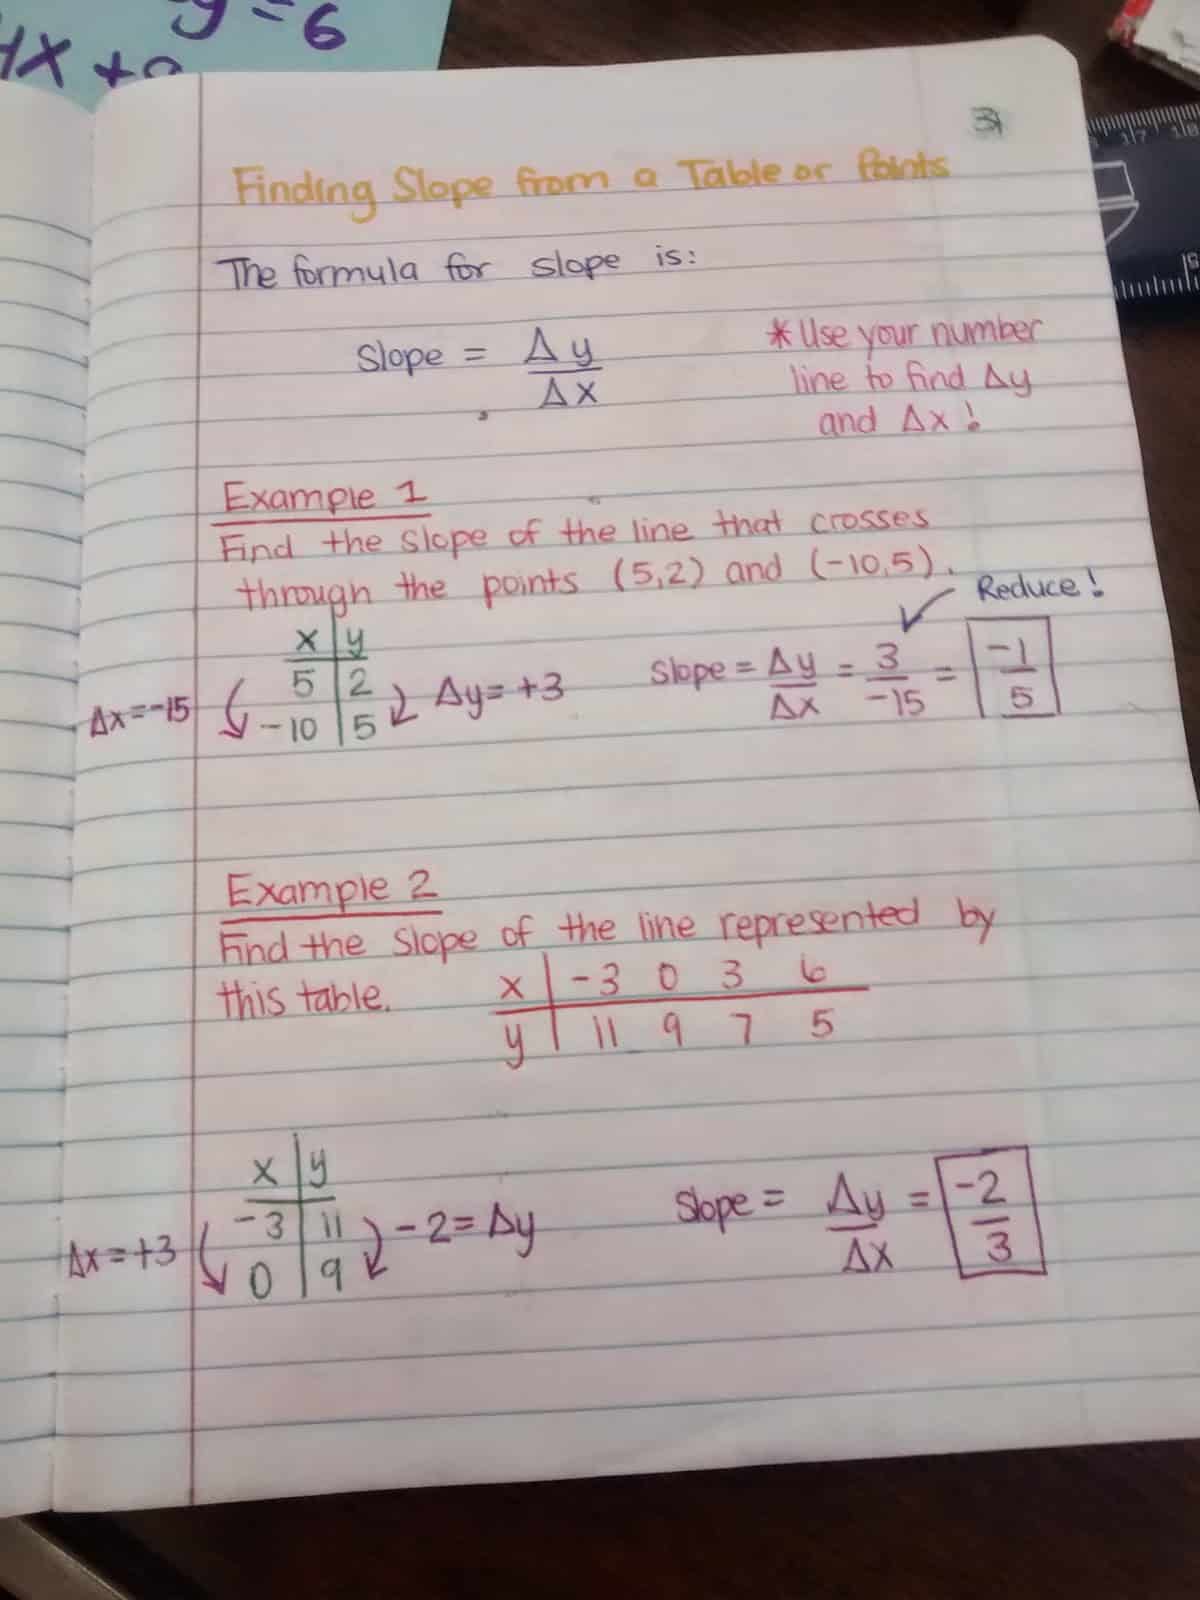 y = 6
4x +
31
Finding Slope from a Table or Points
The formula for slope is:
Slope = Δy
Δx
* Use your number
line to find Δy
and Δx!
Example 1
Find the slope of the line that crosses
through the points (5,2) and (-10,5).
Reduce!
x | y
5 | 2
-10 | 5
Δx = -15
Δy = +3
Slope = Δy/Δx = 3/-15 = -1/5
Example 2
Find the slope of the line represented by
this table.
x | -3 0 3 6
y | 11 9 7 5
x | y
-3 | 11
0 | 9
Δx = +3
-2 = Δy
Slope = Δy/Δx = -2/3